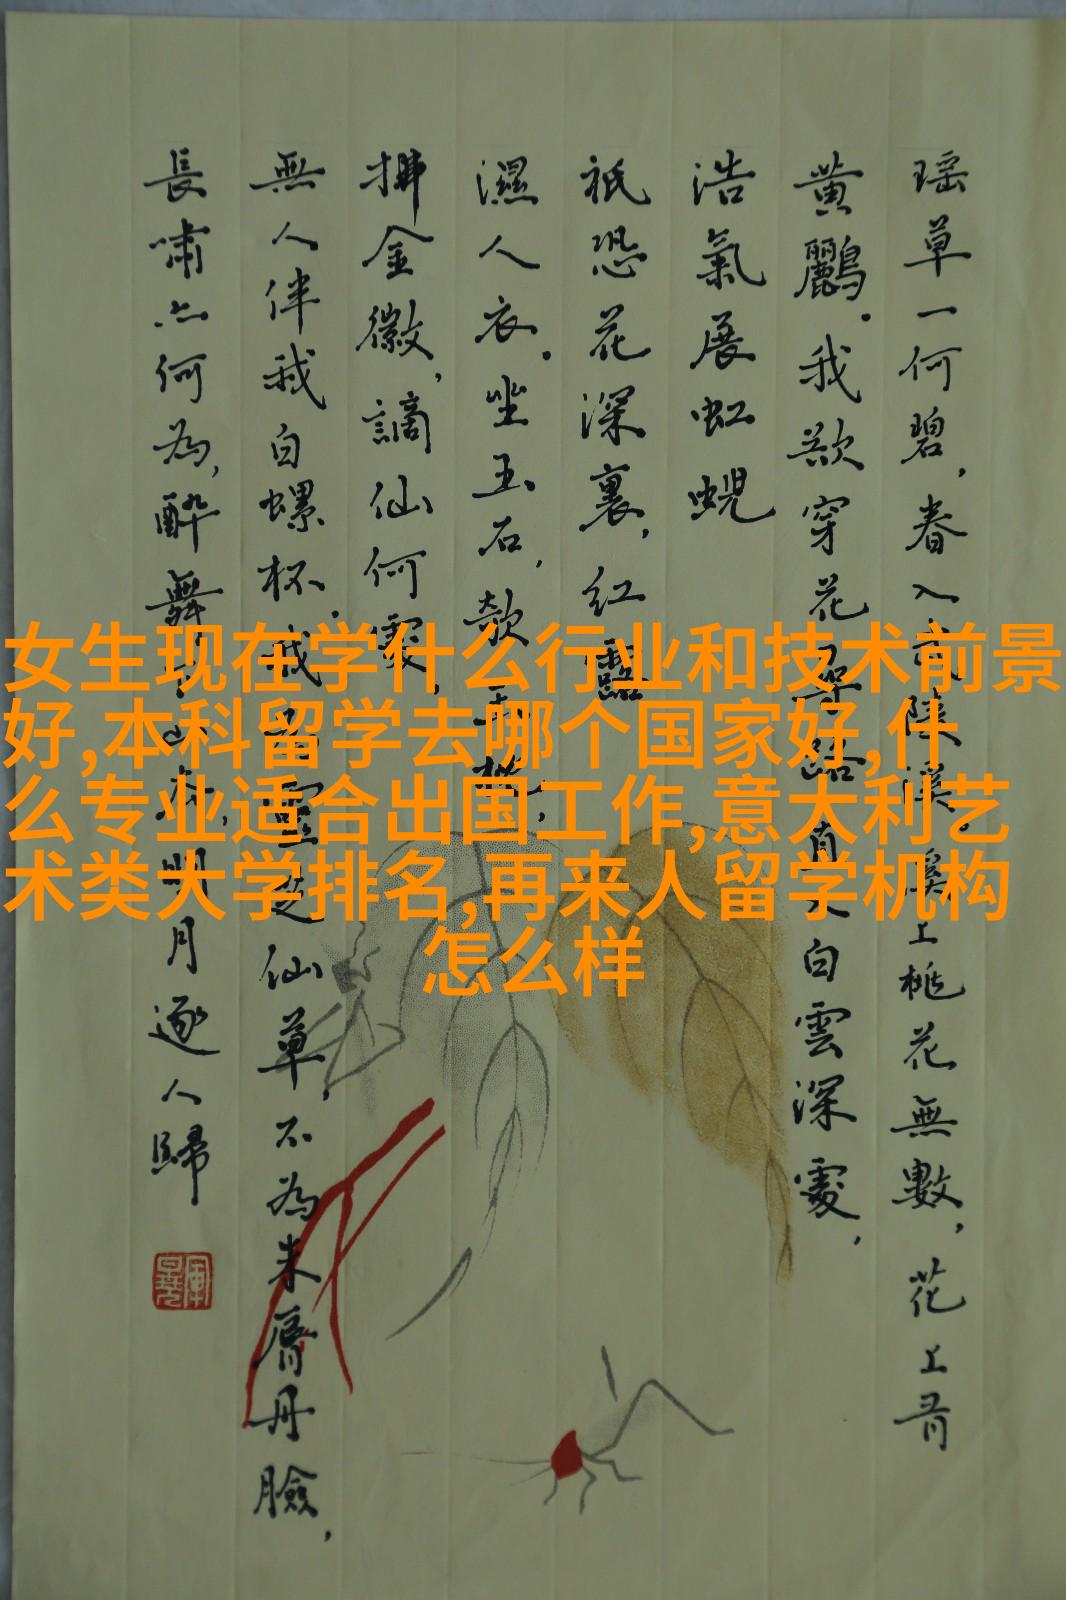 瑶草一何碧，春入武陵溪。溪上桃花無數，花上有
黄鸝。我欲穿花尋路，直入白雲深處，
浩氣展虹蜺
祇恐花深裏，紅露
濕人衣。坐玉石，欹玉枕，
拂金徽，謫仙何處，
無人伴我白螺杯。我為靈芝仙草，不為朱脣丹臉，
長嘯亦何為，醉舞下山去，明月逐人歸
女生现在学什么行业和技术前景
好,本科留学去哪个国家好,什
么专业适合出国工作,意大利艺
术类大学排名,再来人留学机构
怎么样